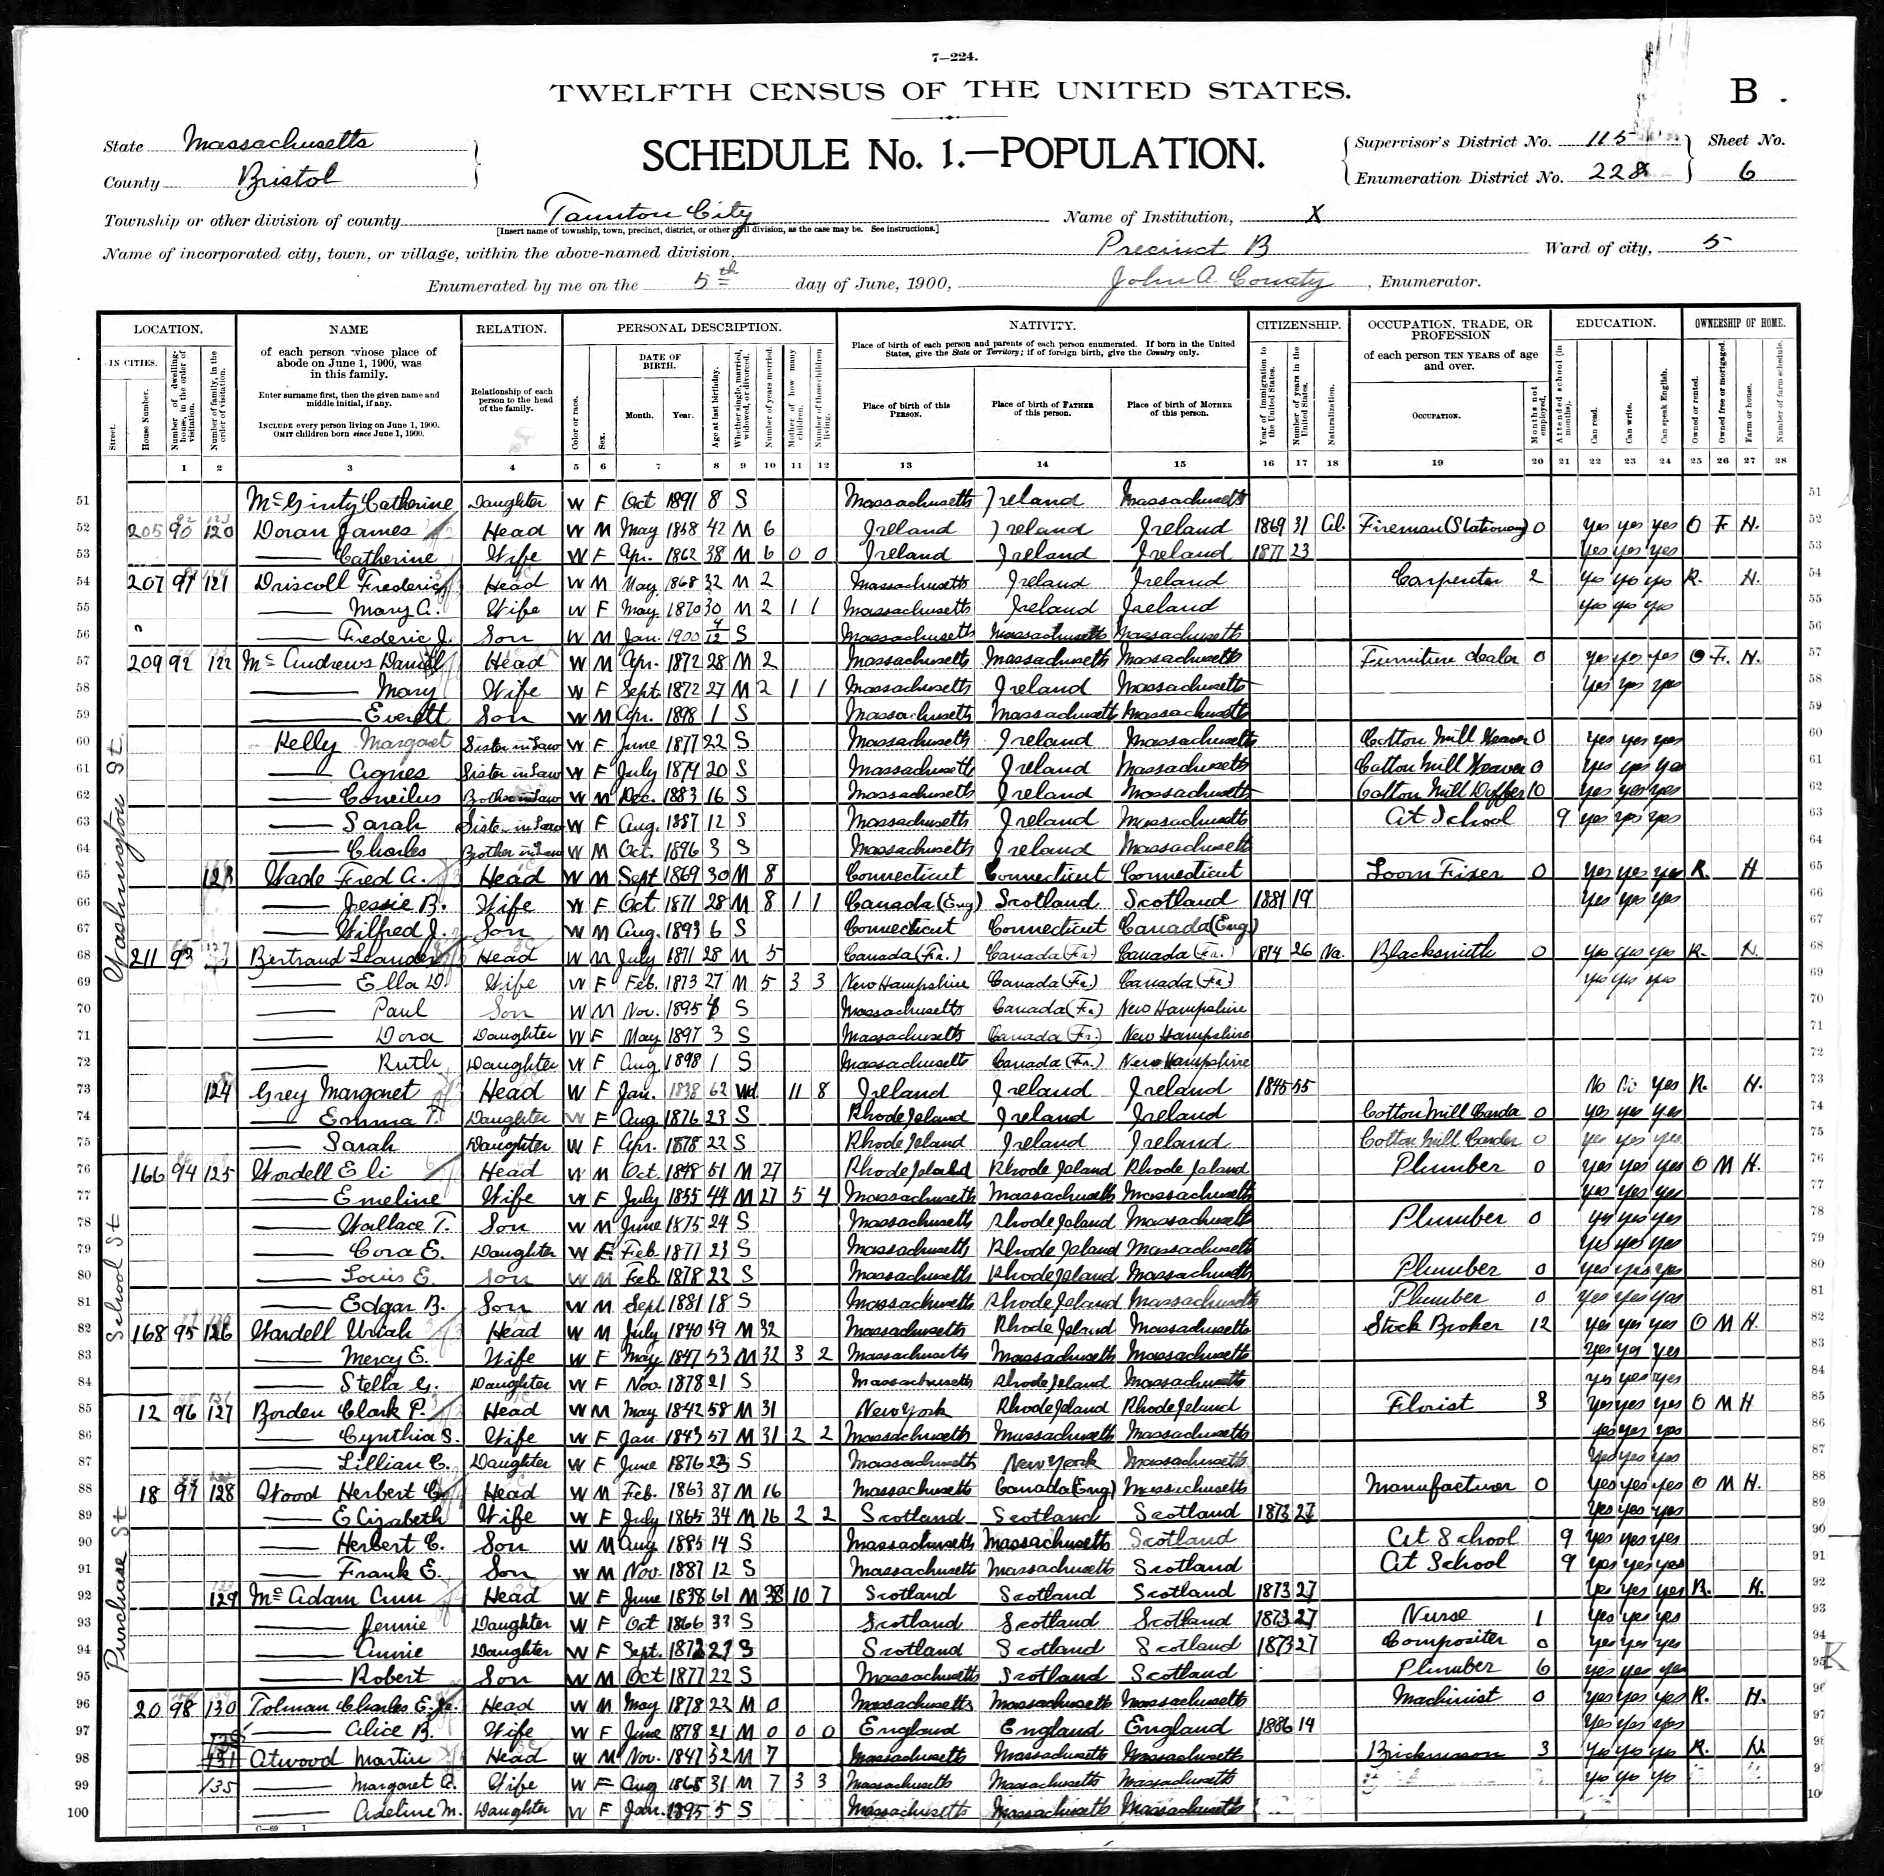 7—224.
TWELFTH CENSUS OF THE UNITED STATES.
B .
State Massachusetts
SCHEDULE No. 1.—POPULATION.
Supervisor's District No. 115 Sheet No.
County Bristol
Enumeration District No. 228 6
Township or other division of county Taunton City Name of Institution, X
[Insert name of township, town, precinct, district, or other civil division, as the case may be. See instructions.]
Name of incorporated city, town, or village, within the above-named division, Precinct B Ward of city, 5
Enumerated by me on the 5th day of June, 1900, John A. Conaty, Enumerator.
LOCATION. NAME RELATION. PERSONAL DESCRIPTION. NATIVITY. CITIZENSHIP. OCCUPATION, TRADE, OR PROFESSION EDUCATION. OWNERSHIP OF HOME.
IN CITIES. Street. House Number. Number of dwelling-house, in the order of visitation. Number of family, in the order of visitation.
of each person whose place of abode on June 1, 1900, was in this family.
Enter surname first, then the given name and middle initial, if any.
INCLUDE every person living on June 1, 1900.
OMIT children born since June 1, 1900.
Relationship of each person to the head of the family.
Color or race. Sex. DATE OF BIRTH. Month. Year. Age at last birthday. Whether single, married, widowed, or divorced. Number of years married. Mother of how many children. Number of these children living.
Place of birth of each person and parents of each person enumerated. If born in the United States, give the State or Territory; if of foreign birth, give the Country only.
Place of birth of this PERSON. Place of birth of FATHER of this person. Place of birth of MOTHER of this person.
Year of immigration to the United States. Number of years in the United States. Naturalization.
of each person TEN YEARS of age and over.
OCCUPATION. Months not employed.
Attended school (in months). Can read. Can write. Can speak English.
Owned or rented. Owned free or mortgaged. Farm or house. Number of farm schedule.
1 2 3 4 5 6 7 8 9 10 11 12 13 14 15 16 17 18 19 20 21 22 23 24 25 26 27 28
Washington St.
51 McGinty Catherine Daughter W F Oct 1891 8 S Massachusetts Ireland Massachusetts 51
52 205 90 120 Doran James Head W M May 1858 42 M 6 Ireland Ireland Ireland 1869 31 Al. Fireman (Stationary) 0 yes yes yes O F. H. 52
53 Catherine Wife W F Apr. 1862 38 M 6 0 0 Ireland Ireland Ireland 1877 23 yes yes yes 53
54 207 91 121 Driscoll Frederic Head W M May 1868 32 M 2 Massachusetts Ireland Ireland Carpenter 2 yes yes yes R. H. 54
55 Mary A. Wife W F May 1870 30 M 2 1 1 Massachusetts Ireland Ireland yes yes yes 55
56 Frederic J. Son W M Jan. 1900 4/12 S Massachusetts Massachusetts Massachusetts 56
57 209 92 122 McAndrews Daniel Head W M Apr. 1872 28 M 2 Massachusetts Massachusetts Massachusetts Furniture dealer 0 yes yes yes O F. H. 57
58 Mary Wife W F Sept 1872 27 M 2 1 1 Massachusetts Ireland Massachusetts yes yes yes 58
59 Everett Son W M Apr. 1898 1 S Massachusetts Massachusetts Massachusetts 59
60 Kelly Margaret Sister in Law W F June 1877 22 S Massachusetts Ireland Massachusetts Cotton Mill Weaver 0 yes yes yes 60
61 Agnes Sister in Law W F July 1879 20 S Massachusetts Ireland Massachusetts Cotton Mill Weaver 0 yes yes yes 61
62 Cornelius Brother in Law W M Dec. 1883 16 S Massachusetts Ireland Massachusetts Cotton Mill Doffer 10 yes yes yes 62
63 Sarah Sister in Law W F Aug. 1887 12 S Massachusetts Ireland Massachusetts At School 9 yes yes yes 63
64 Charles Brother in Law W M Oct. 1896 3 S Massachusetts Ireland Massachusetts 64
65 123 Wade Fred A. Head W M Sept 1869 30 M 8 Connecticut Connecticut Connecticut Loom Fixer 0 yes yes yes R. H 65
66 Jessie B. Wife W F Oct 1871 28 M 8 1 1 Canada (Eng) Scotland Scotland 1881 19 yes yes yes 66
67 Wilfred J. Son W M Aug. 1893 6 S Connecticut Connecticut Canada (Eng.) 67
68 211 93 Bertrand Leander Head W M July 1871 28 M 5 Canada (Fr.) Canada (Fr.) Canada (Fr.) 1874 26 Na. Blacksmith 0 yes yes yes R. H. 68
69 Ella D. Wife W F Feb. 1873 27 M 5 3 3 New Hampshire Canada (Fr.) Canada (Fr.) yes yes yes 69
70 Paul Son W M Nov. 1895 4 S Massachusetts Canada (Fr.) New Hampshire 70
71 Dora Daughter W F May 1897 3 S Massachusetts Canada (Fr.) New Hampshire 71
72 Ruth Daughter W F Aug 1898 1 S Massachusetts Canada (Fr.) New Hampshire 72
73 124 Grey Margaret Head W F Jan. 1838 62 Wd 11 8 Ireland Ireland Ireland 1845 55 No No yes R. H. 73
74 Emma T. Daughter W F Aug 1876 23 S Rhode Island Ireland Ireland Cotton Mill Carder 0 yes yes yes 74
75 Sarah Daughter W F Apr. 1878 22 S Rhode Island Ireland Ireland Cotton Mill Carder 0 yes yes yes 75
School St
76 166 94 125 Wordell Eli Head W M Oct. 1848 51 M 27 Rhode Island Rhode Island Rhode Island Plumber 0 yes yes yes O M H. 76
77 Emeline Wife W F July 1855 44 M 27 5 4 Massachusetts Massachusetts Massachusetts yes yes yes 77
78 Wallace T. Son W M June 1875 24 S Massachusetts Rhode Island Massachusetts Plumber 0 yes yes yes 78
79 Cora E. Daughter W F Feb. 1877 23 S Massachusetts Rhode Island Massachusetts yes yes yes 79
80 Louis E. Son W M Feb 1878 22 S Massachusetts Rhode Island Massachusetts Plumber 0 yes yes yes 80
81 Edgar B. Son W M Sept 1881 18 S Massachusetts Rhode Island Massachusetts Plumber 0 yes yes yes 81
82 168 95 126 Wardell Uriah Head W M July 1840 59 M 32 Massachusetts Rhode Island Massachusetts Stock Broker 12 yes yes yes O M H. 82
83 Mercy E. Wife W F May 1847 53 M 32 3 2 Massachusetts Massachusetts Massachusetts yes yes yes 83
84 Stella G. Daughter W F Nov. 1878 21 S Massachusetts Rhode Island Massachusetts yes yes yes 84
Purchase St
85 12 96 127 Borden Clark P. Head W M May 1842 58 M 31 New York Rhode Island Rhode Island Florist 3 yes yes yes O M H 85
86 Cynthia S. Wife W F Jan 1843 57 M 31 2 2 Massachusetts Massachusetts Massachusetts yes yes yes 86
87 Lillian C. Daughter W F June 1876 23 S Massachusetts New York Massachusetts yes yes yes 87
88 18 97 128 Wood Herbert C. Head W M Feb. 1863 37 M 16 Massachusetts Canada (Eng) Massachusetts Manufacturer 0 yes yes yes O M H. 88
89 Elizabeth Wife W F July 1865 34 M 16 2 2 Scotland Scotland Scotland 1873 27 yes yes yes 89
90 Herbert C. Son W M Aug 1885 14 S Massachusetts Massachusetts Scotland At School 9 yes yes yes 90
91 Frank E. Son W M Nov. 1887 12 S Massachusetts Massachusetts Scotland At School 9 yes yes yes 91
92 129 McAdam Ann Head W F June 1838 61 M 38 10 7 Scotland Scotland Scotland 1873 27 yes yes yes R. H. 92
93 Jennie Daughter W F Oct 1866 33 S Scotland Scotland Scotland 1873 27 Nurse 1 yes yes yes 93
94 Annie Daughter W F Sept. 1872 27 S Scotland Scotland Scotland 1873 27 Compositer 0 yes yes yes 94
95 Robert Son W M Oct 1877 22 S Massachusetts Scotland Scotland Plumber 6 yes yes yes 95 K
96 20 98 130 Tolman Charles E. Jr. Head W M May 1878 22 M 0 Massachusetts Massachusetts Massachusetts Machinist 0 yes yes yes R. H. 96
97 Alice B. Wife W F June 1878 21 M 0 0 0 England England England 1886 14 yes yes yes 97
98 131 Atwood Martin Head W M Nov. 1847 52 M 7 Massachusetts Massachusetts Massachusetts Brickmason 3 yes yes yes R. H 98
99 135 Margaret A. Wife W F Aug 1868 31 M 7 3 3 Massachusetts Massachusetts Massachusetts yes yes yes 9
100 Adeline M. Daughter W F Jan. 1895 5 S Massachusetts Massachusetts Massachusetts 10
C—69 1